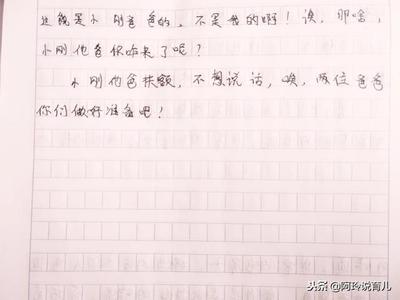 这就是小刚爸爸的，不是我的啊！诶，那啥，
小刚他爸你咋来了呢？
小刚他爸扶额，不想说话，唉，两位爸爸
你们做好准备吧！
头条 @阿玲说育儿